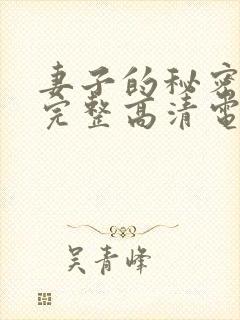 妻子的秘密
完整高清電
吴青峰